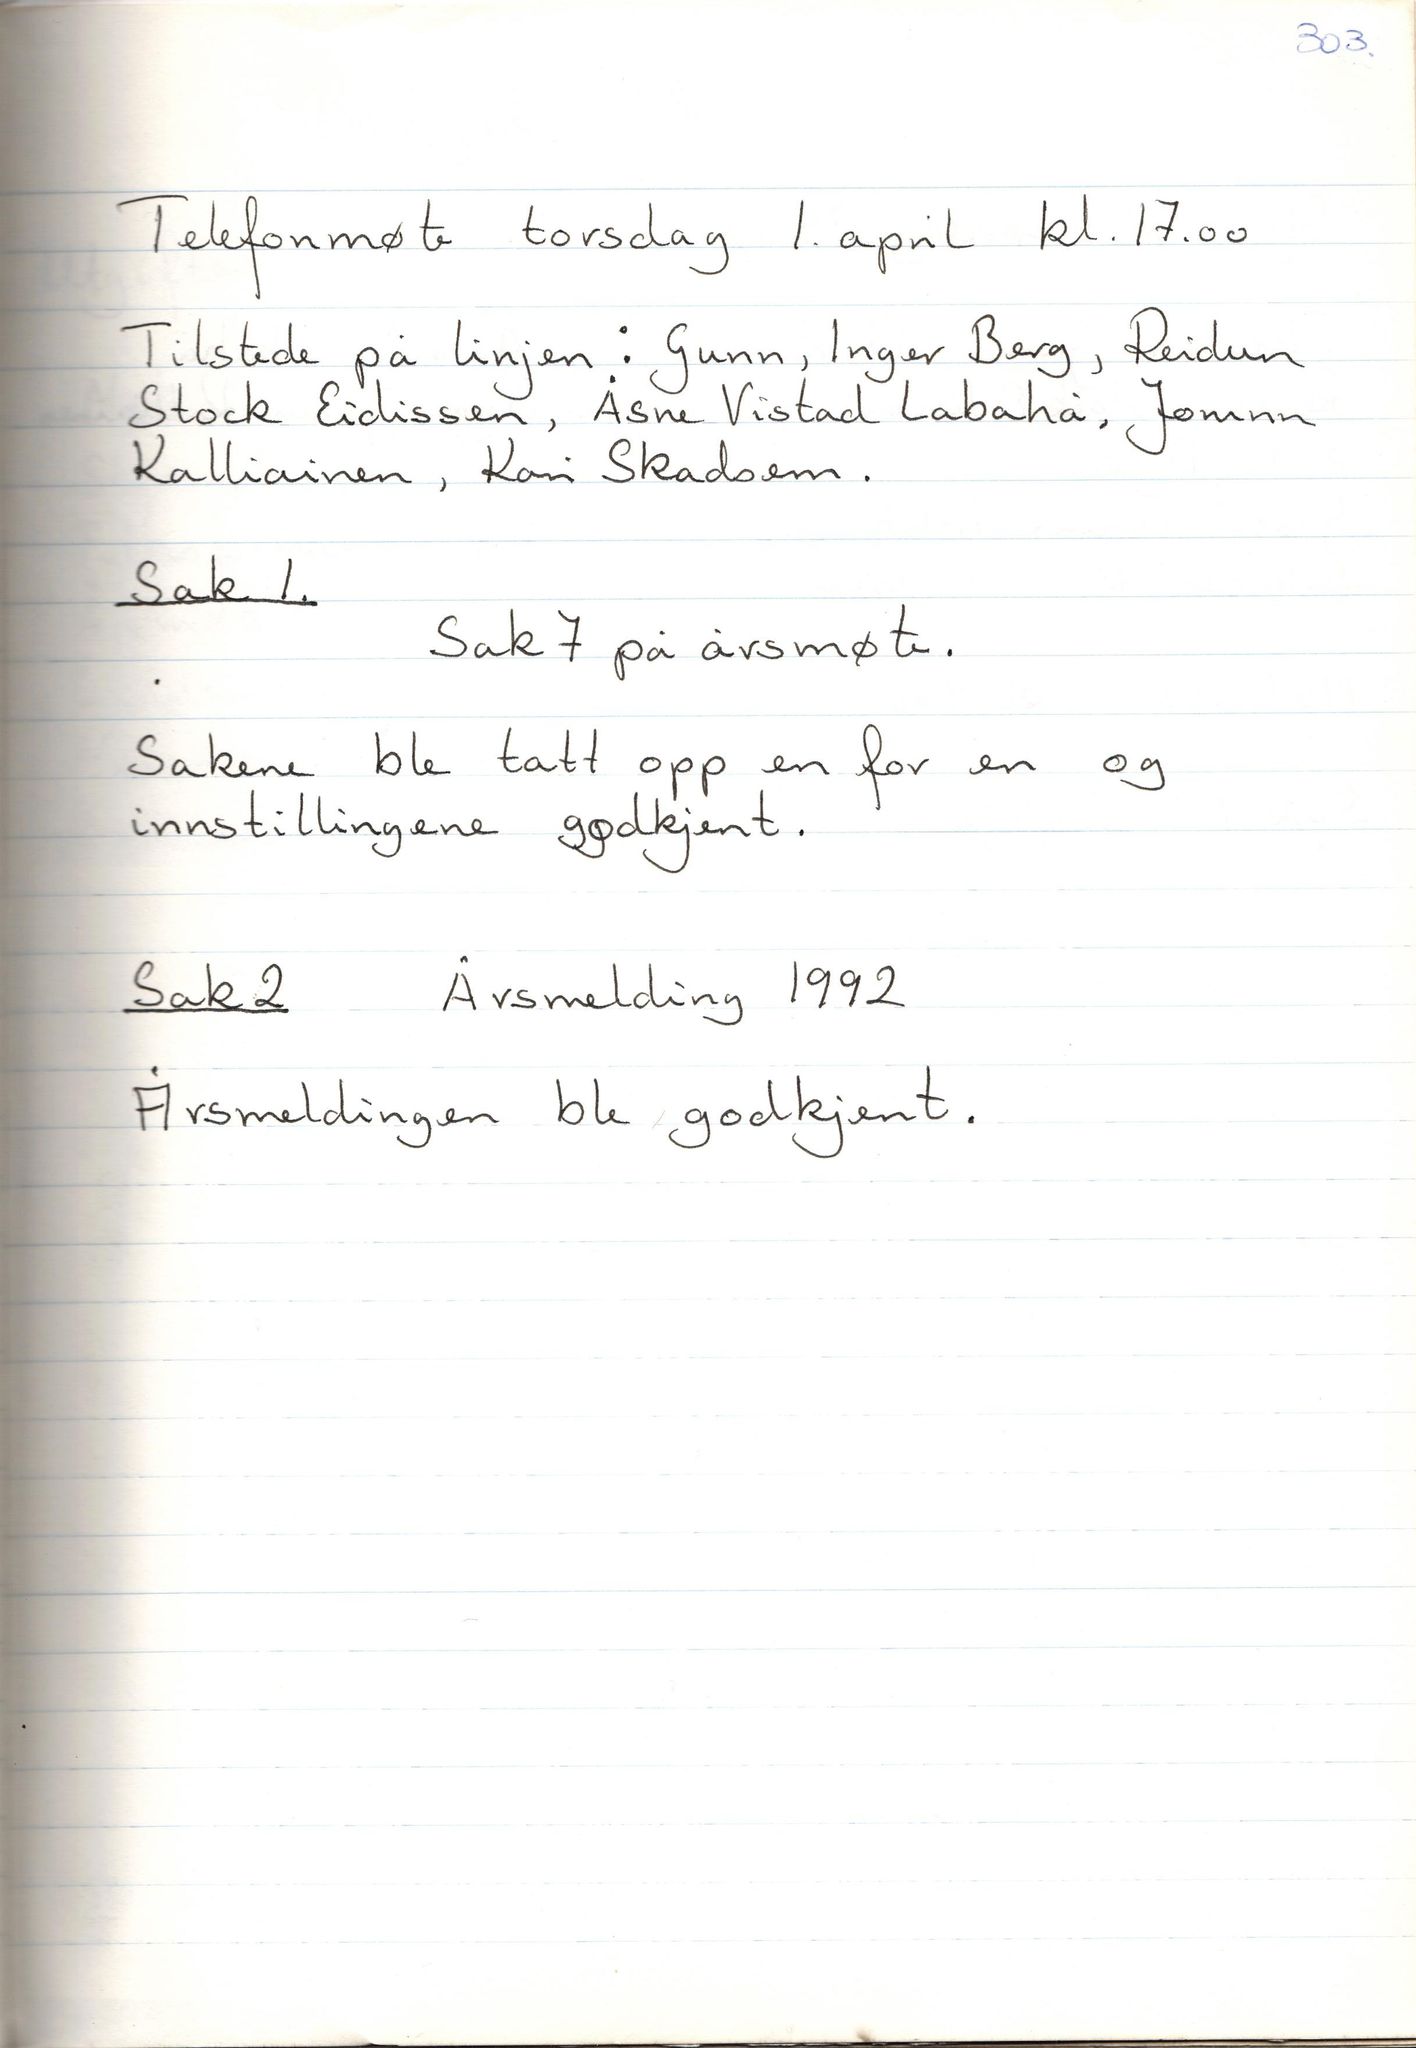 303.
Telefonmøte torsdag 1. april kl. 17.00
Tilstede på linjen : Gunn, Inger Berg, Reidun
Stock Eidissen, Åsne Vistad Labahå, Jorunn
Kalliainen, Kari Skadsem.
Sak 1.
Sak 7 på årsmøte.
Sakene ble tatt opp en for en og
innstillingene godkjent.
Sak 2 Årsmelding 1992
Årsmeldingen ble godkjent.